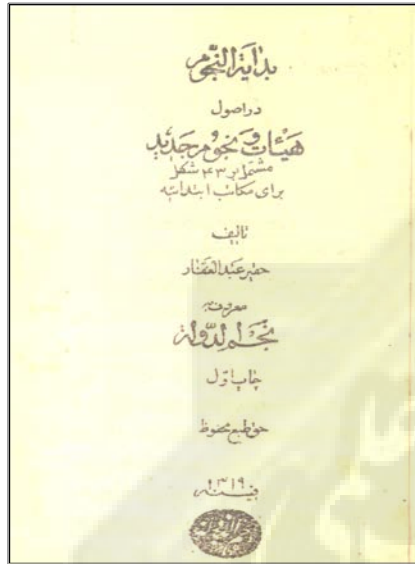 بدایة النجوم
در اصول
هیئات و نجوم جدید
مشتمل بر ۴۳ شکل
برای مکاتب ابتدائیه
تالیف
حقیر عبد الغفار
معروف به
نجم الدوله
چاپ اول
حق طبع محفوظ
۱۳۱۹